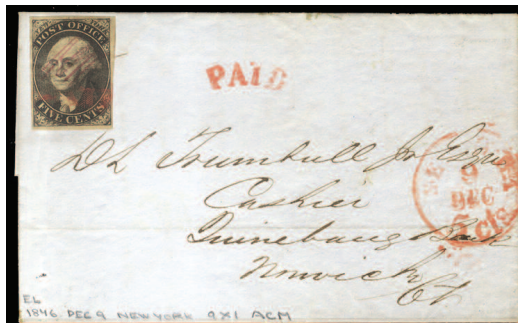 POST OFFICE
FIVE CENTS
PAID
D L Trumbull Jr Esqr
Cashier
Quinebaug Bank
Norwich
Ct
9
DEC
5 cts
EL
1846 DEC 9 NEW YORK 9X1 ACM